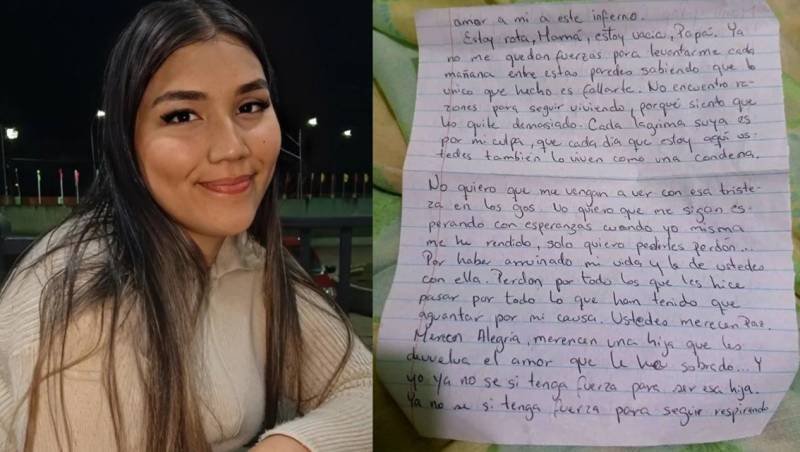 amor a mi a este infierno.
Estoy rota, Mamá, estoy vacía, Papá. Ya
no me quedan fuerzas para levantarme cada
mañana entre estas paredes sabiendo que lo
unico que hecho es fallarte. No encuentro ra-
zones para seguir viviendo, porque siento que
les quite demasiado. Cada lagrima suya es
por mi culpa, que cada día que estoy aquí us-
tedes también lo viven como una condena.
No quiero que me vengan a ver con esa triste-
za en los ojos. No quiero que me sigan es-
perando con esperanzas cuando yo misma
me he rendido, solo quiero pedirles perdón...
Por haber arruinado mi vida y la de ustedes
con ella. Perdon por todo los que les hice
pasar por todo lo que han tenido que
aguantar por mi causa. Ustedes merecen Paz.
Merecen Alegría, merecen una hija que les
devuelva el amor que le ha sobrado... Y
yo ya no se si tenga fuerza para ser esa hija.
Ya no se si tenga fuerza para seguir respirando